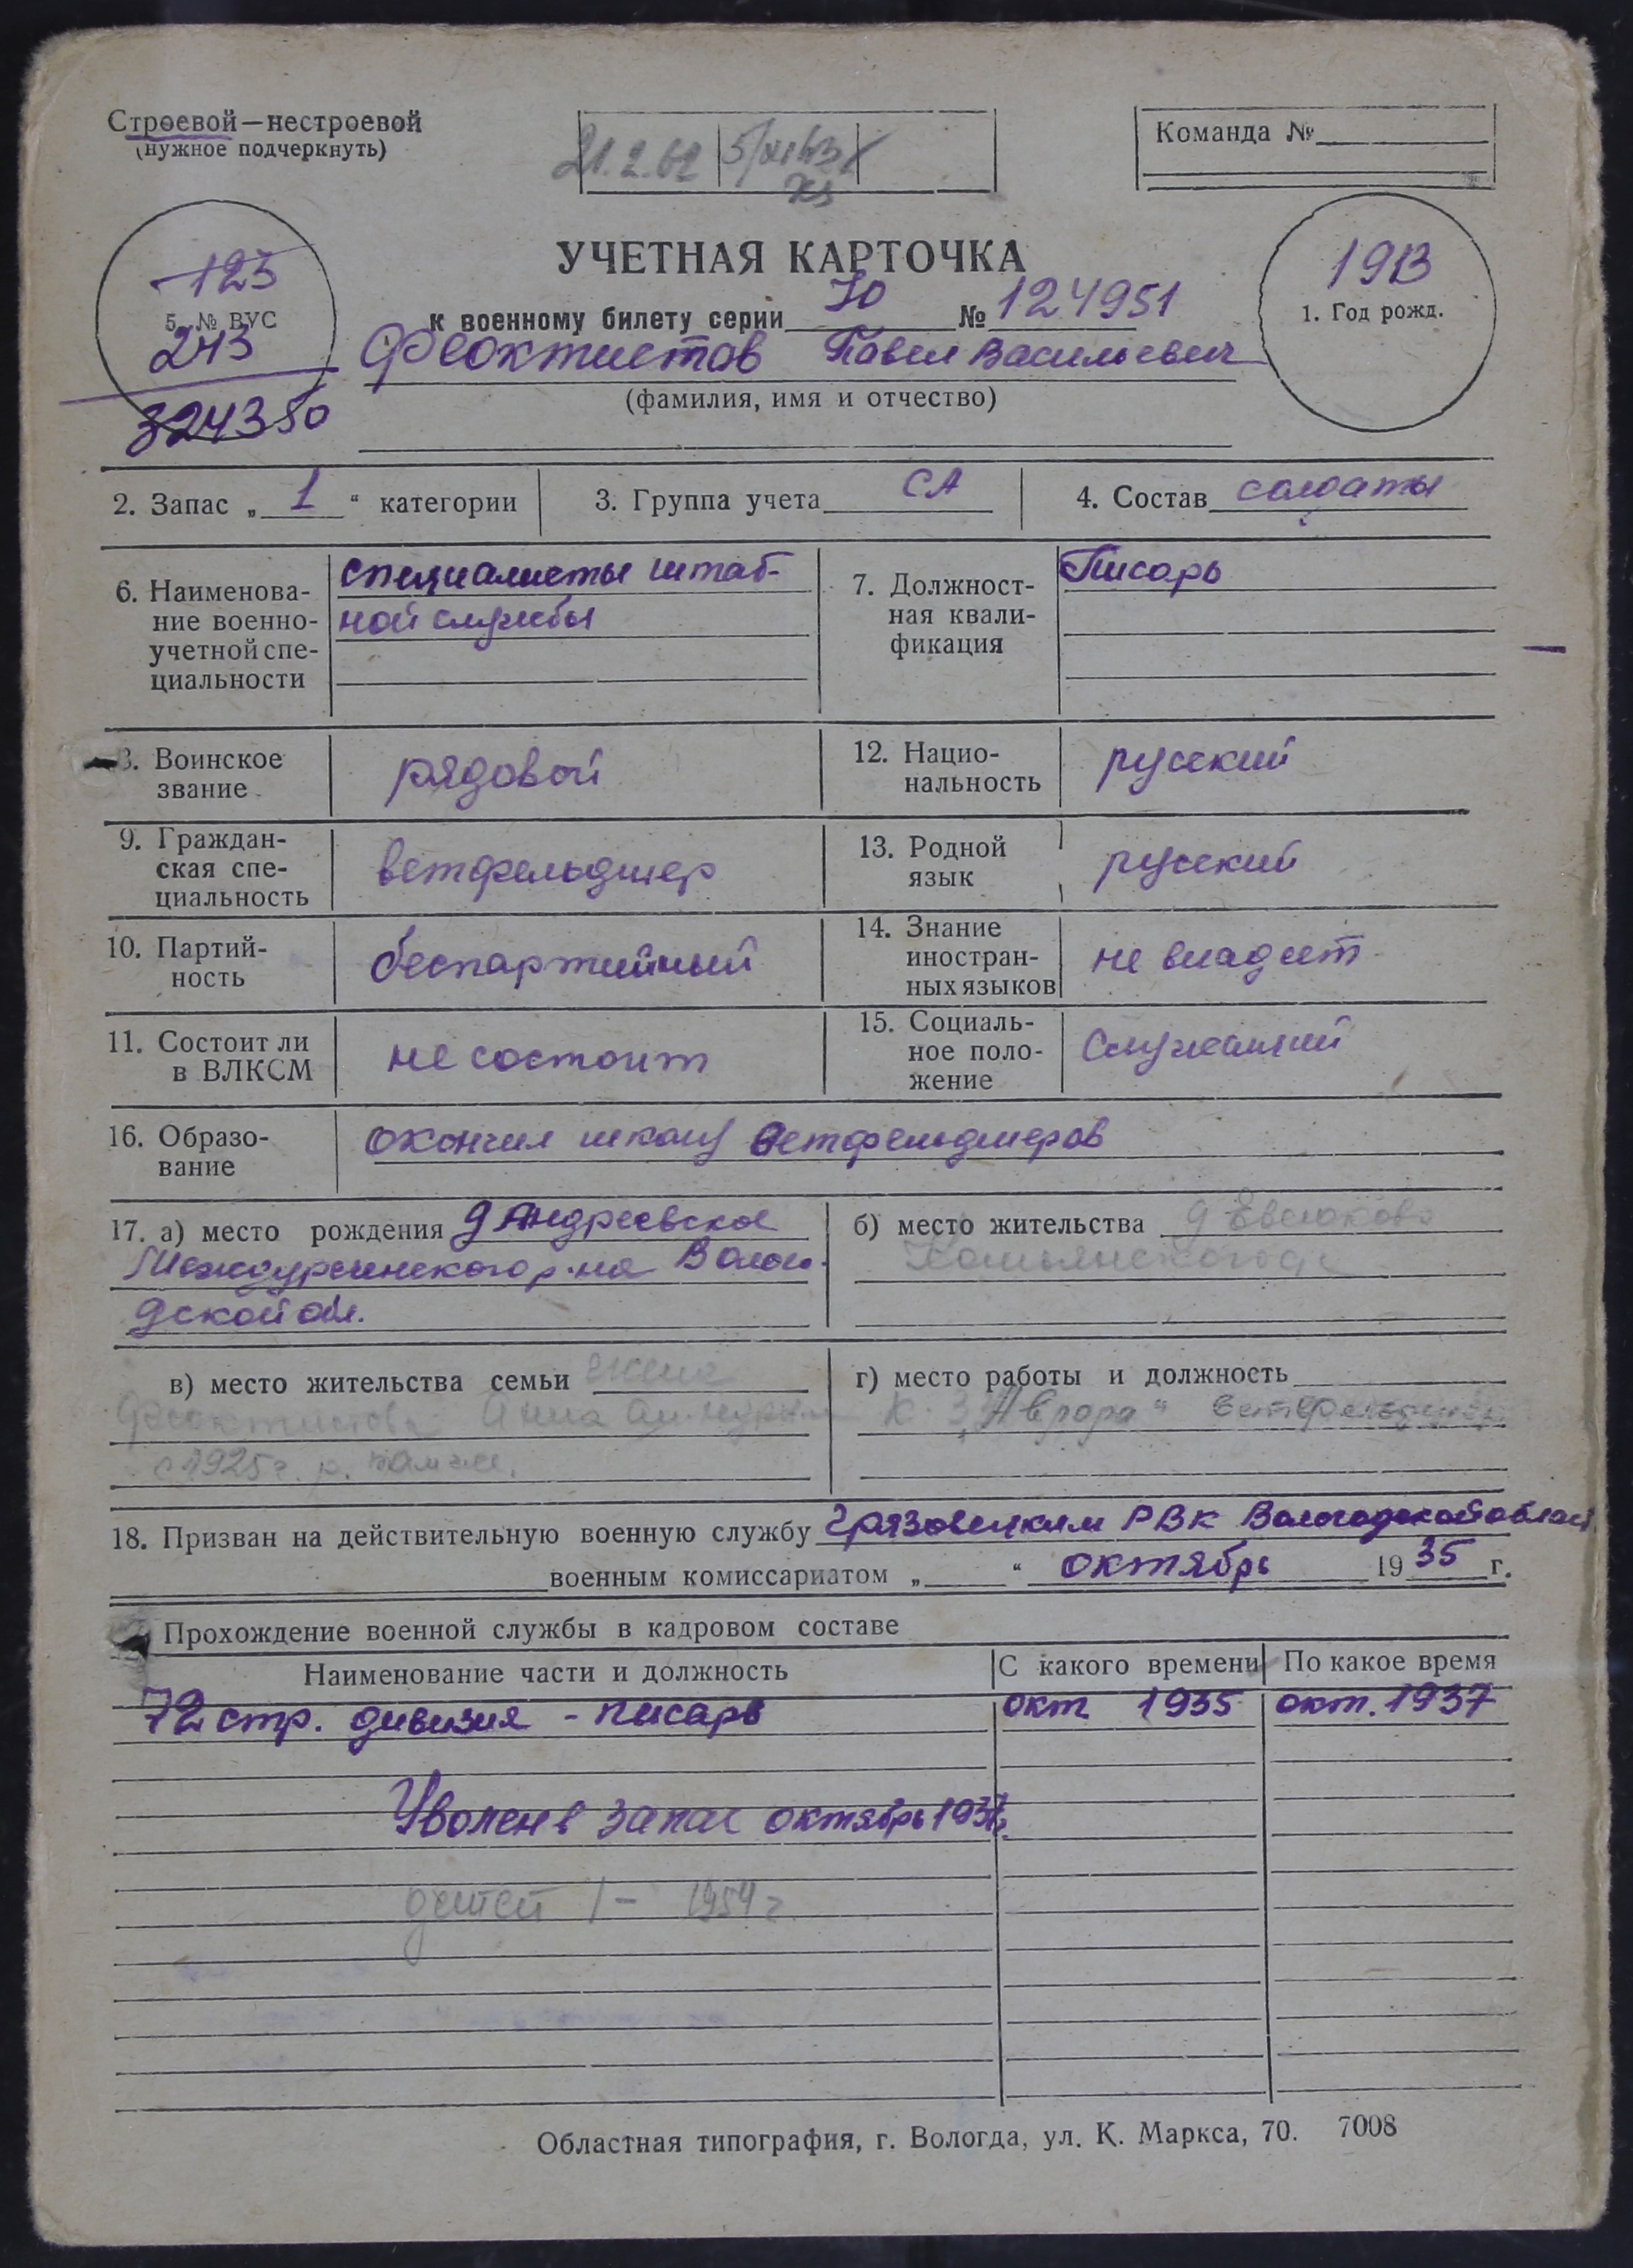 Строевой—нестроевой
(нужное подчеркнуть)
21.2.62
Команда №
УЧЕТНАЯ КАРТОЧКА
123
5. № ВУС
243
324350
к военному билету серии 70 № 124951
1913
1. Год рожд.
Феоктистов Павел Васильевич
(фамилия, имя и отчество)
2. Запас „ 1 “ категории
3. Группа учета СА
4. Состав солдаты
6. Наименова-
ние военно-
учетной спе-
циальности
специалисты штаб-
ной службы
7. Должност-
ная квали-
фикация
Писарь
8. Воинское
звание
рядовой
12. Нацио-
нальность
русский
9. Граждан-
ская спе-
циальность
ветфельдшер
13. Родной
язык
русский
10. Партий-
ность
беспартийный
14. Знание
иностран-
ных языков
не владеет
11. Состоит ли
в ВЛКСМ
не состоит
15. Социаль-
ное поло-
жение
Служащий
16. Образо-
вание
окончил школу ветфельдшеров
17. а) место рождения д Андреевское
Междуреченского р-на Волого-
дской обл.
б) место жительства д Евсюково
в) место жительства семьи жена
Феоктистова Анна
с 1925 г. р.
г) место работы и должность
к-з „Аврора“ ветфельдшер
18. Призван на действительную военную службу Грязовецким РВК Вологодской област
военным комиссариатом „ “ октябрь 1935 г.
Прохождение военной службы в кадровом составе
Наименование части и должность
С какого времени
По какое время
72 стр. дивизия - писарь окт 1935 окт. 1937
Уволен в запас октябрь 1937г.
детей 1 - 1954 г.
Областная типография, г. Вологда, ул. К. Маркса, 70. 7008